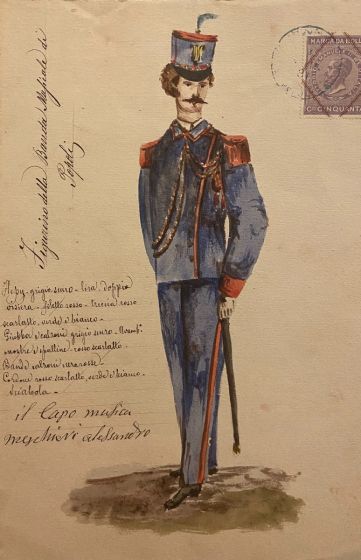 Figurino della Banda Musicale di
Popoli
Kepy - grigio scuro - lira doppia
visiera - filetto rosso - treccia rosso
scarlatto, verde e bianco -
Giubba e calzoni grigio scuro -
mostre e spalline rosso scarlatto -
Bande calzoni rosse -
Cordone rosso scarlatto, verde e bianco -
Sciabola -
il Capo musica
Alessandro
MARCA DA BOLLO
CINQUANTA